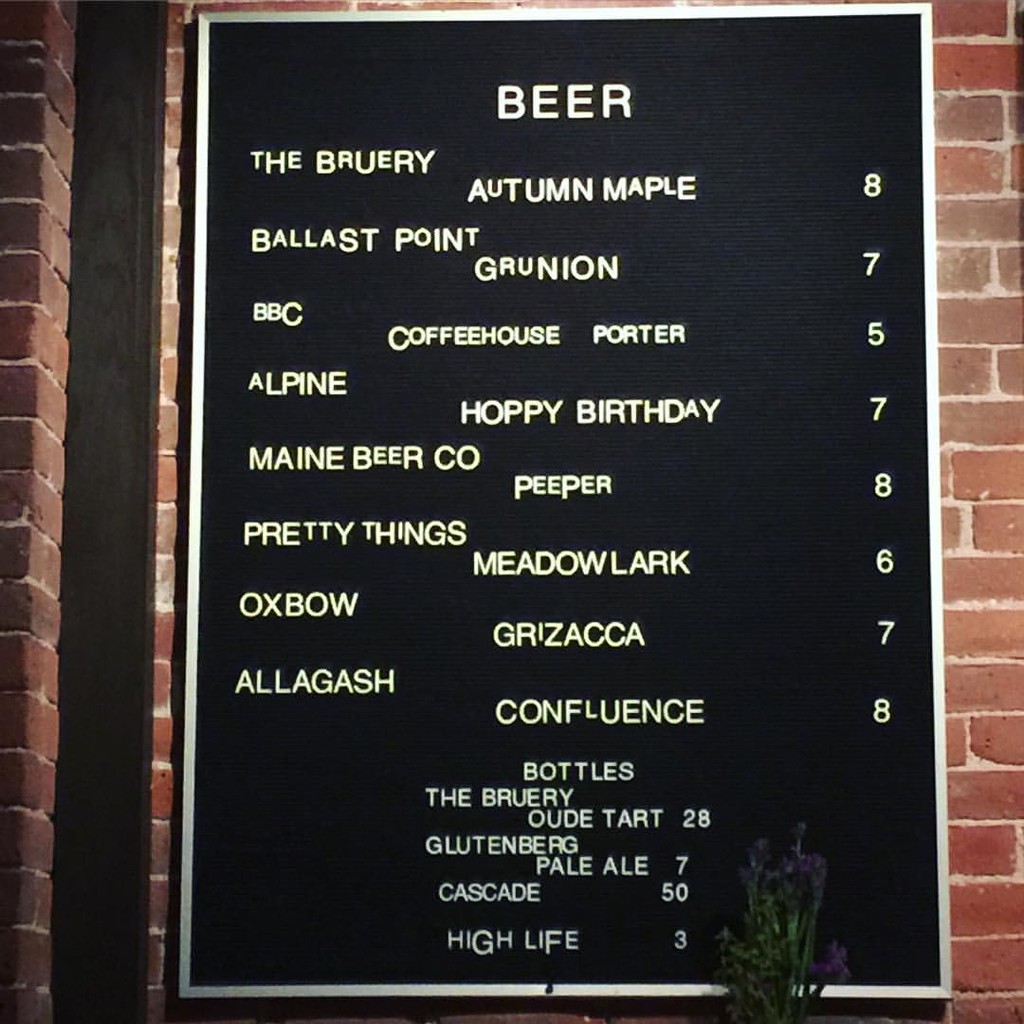 BEER
THE BRUERY
AUTUMN MAPLE 8
BALLAST POINT
GRUNION 7
BBC
COFFEEHOUSE PORTER 5
ALPINE
HOPPY BIRTHDAY 7
MAINE BEER CO
PEEPER 8
PRETTY THINGS
MEADOWLARK 6
OXBOW
GRIZACCA 7
ALLAGASH
CONFLUENCE 8
BOTTLES
THE BRUERY
OUDE TART 28
GLUTENBERG
PALE ALE 7
CASCADE 50
HIGH LIFE 3